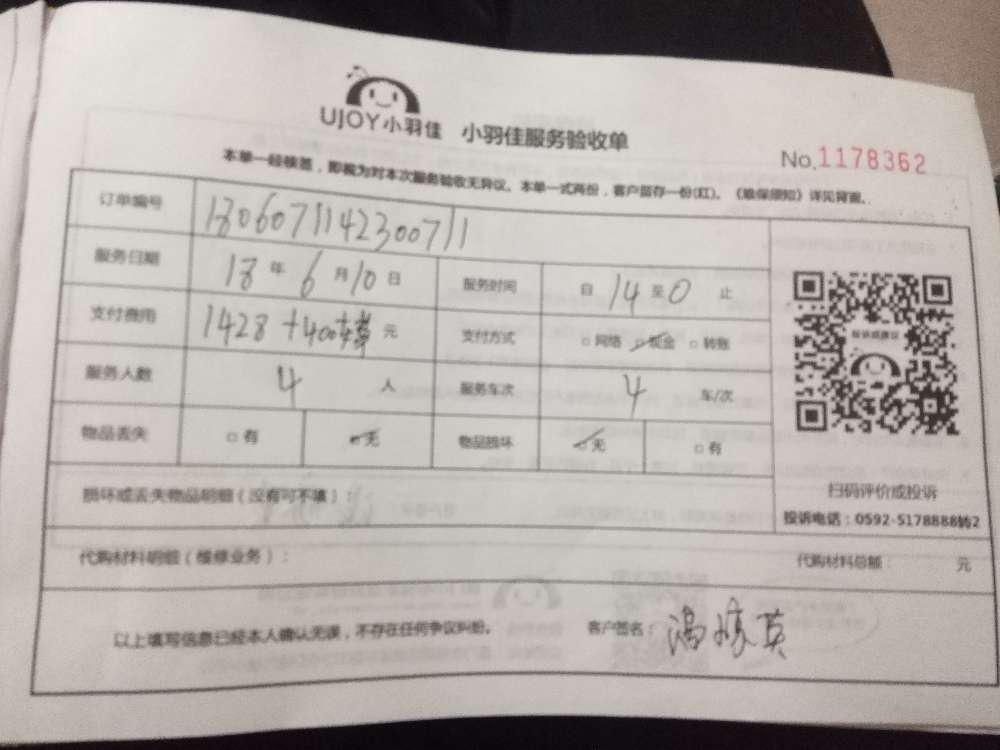 UJOY小羽佳 小羽佳服务验收单
No.1178362
本单一经核签，即视为对本次服务验收无异议。本单一式两份，客户留存一份(红)。《维保须知》详见背面。
订单编号 18060711142300711
服务日期 18 年 6 月 10 日 服务时间 自 14 至 0 止
支付费用 1428 + 400 元 支付方式 □网络 ☑现金 □转账
服务人数 4 人 服务车次 4 车/次
物品丢失 □有 ☑无 物品损坏 ☑无 □有
投诉或建议
扫码评价或投诉
投诉电话：0592-5178888转2
损坏或丢失物品明细（没有可不填）：
代购材料明细（维修业务）： 代购材料总额： 元
以上填写信息已经本人确认无误，不存在任何争议纠纷。 客户签名：